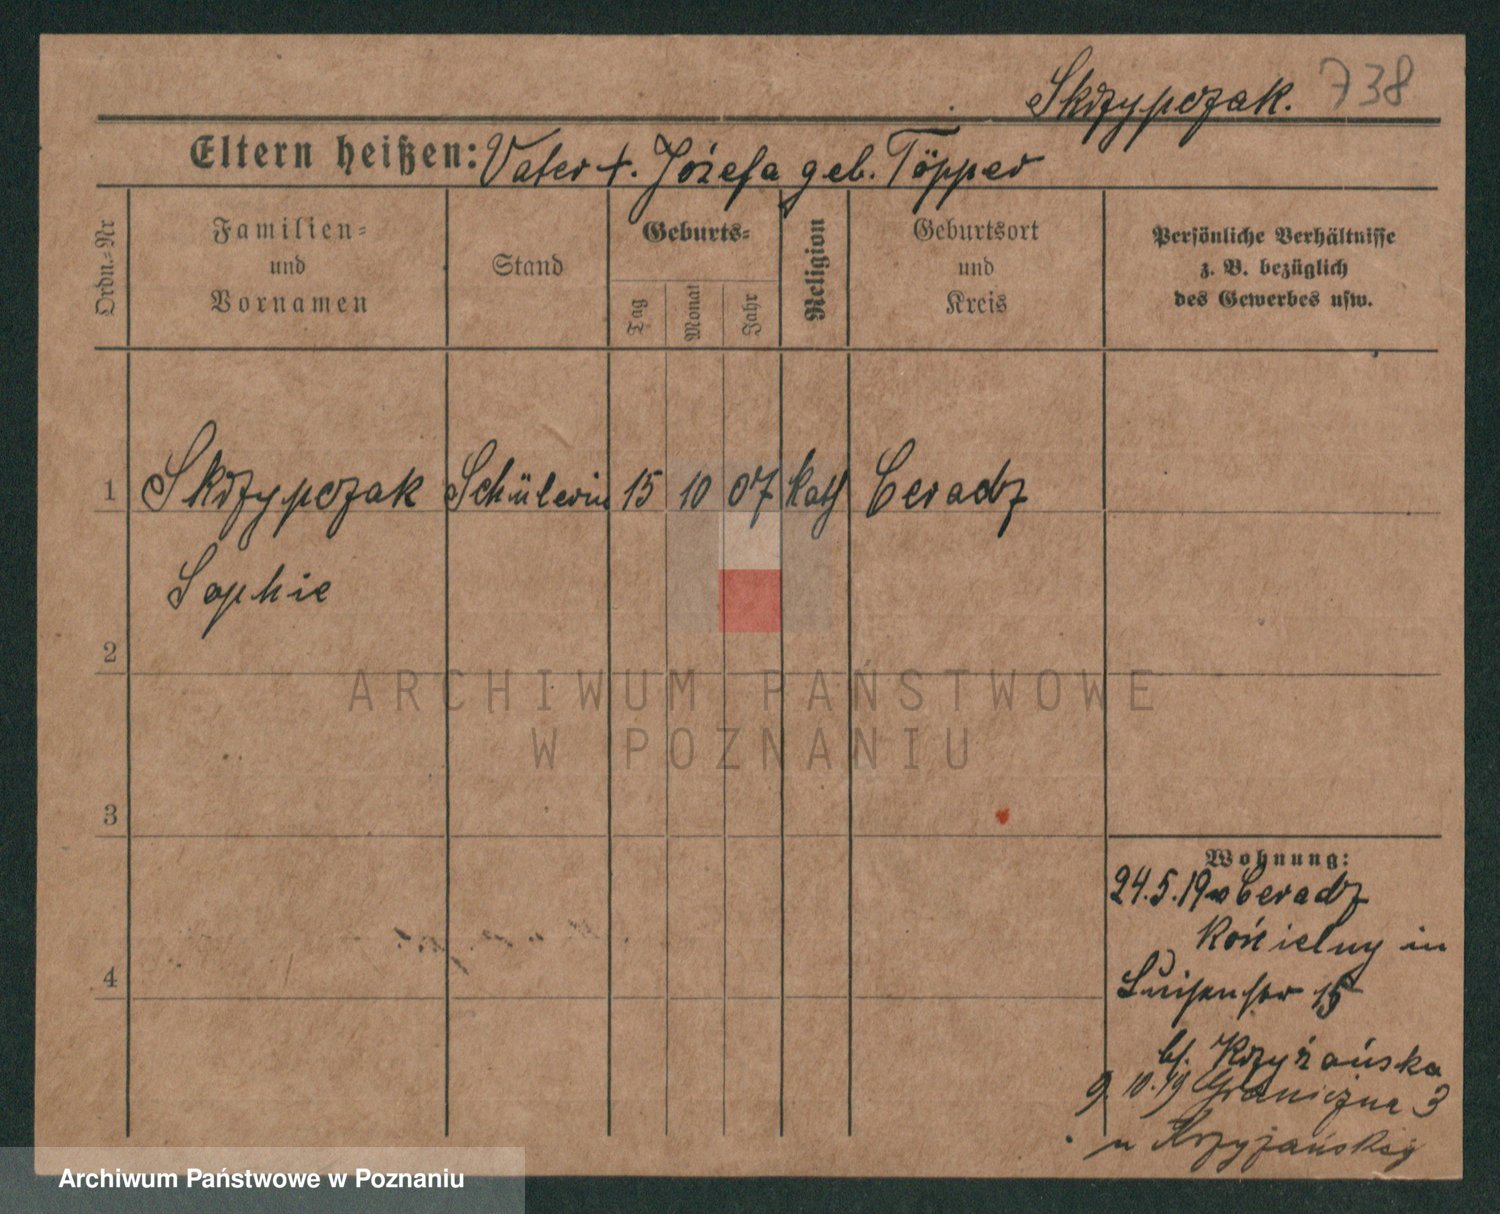 Skrzypczak. 738
Eltern heißen: Vater +. Józefa geb. Töpper
Ordn.=Nr
Familien=
und
Vornamen
Stand
Geburts=
Tag
Monat
Jahr
Religion
Geburtsort
und
Kreis
Persönliche Verhältnisse
z. B. bezüglich
des Gewerbes usw.
1 Skrzypczak Schülerin 15 10 07 kath Ceradz
Sophie
2
ARCHIWUM PAŃSTWOWE
W POZNANIU
3
Wohnung:
24.5.19 Ceradz
Kościelny in
4
Luisenstr 15
bf. Krzyżańska
9. 10. 19 Graniczna 3
u Krzyżańskiej
Archiwum Państwowe w Poznaniu